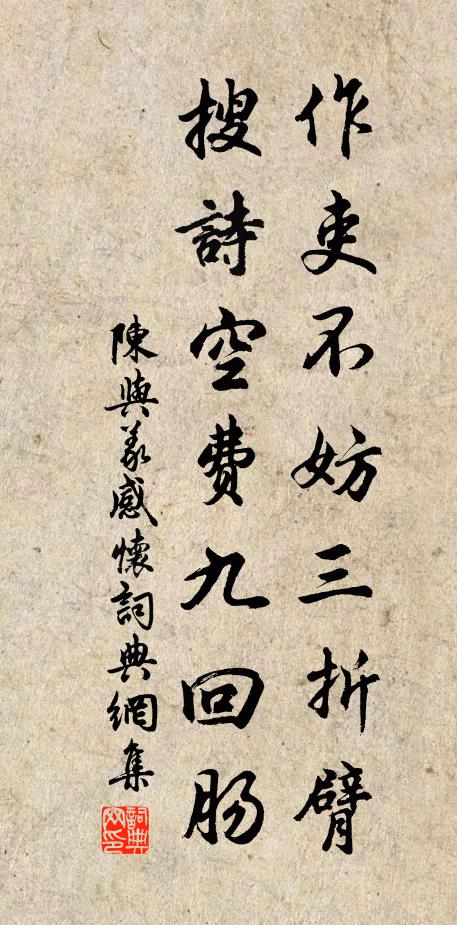 作吏不妨三折臂
搜詩空費九回肠
陳與义感懷詞典網集
詞典
网印